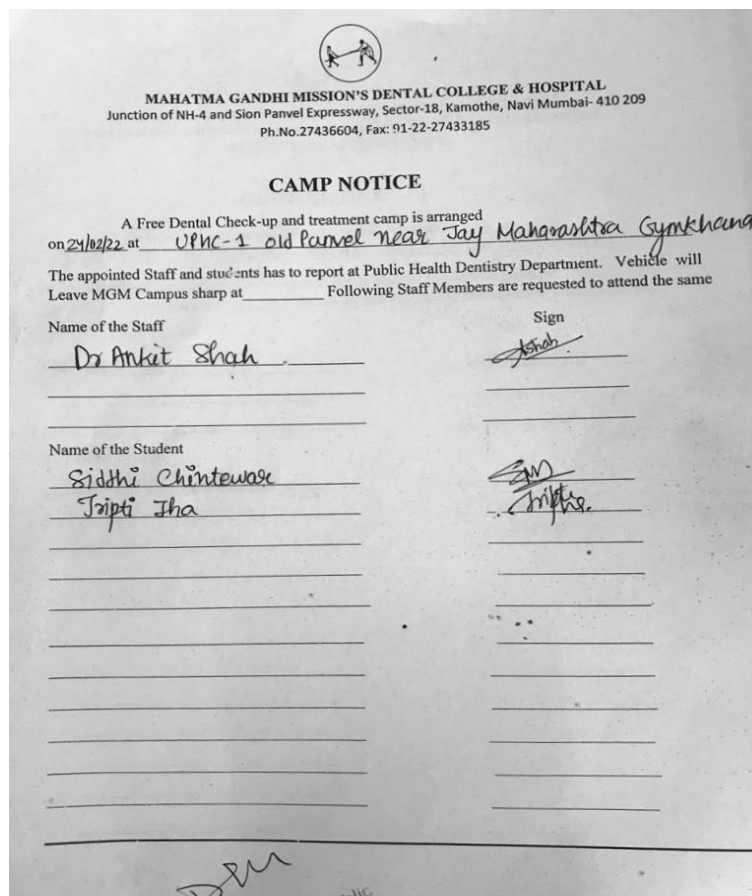 MAHATMA GANDHI MISSION'S DENTAL COLLEGE & HOSPITAL
Junction of NH-4 and Sion Panvel Expressway, Sector-18, Kamothe, Navi Mumbai- 410 209
Ph.No.27436604, Fax: 91-22-27433185
CAMP NOTICE
A Free Dental Check-up and treatment camp is arranged
on 24/02/22 at UPHC-1 old Panvel near Jay Maharashtra Gymkhana
The appointed Staff and students has to report at Public Health Dentistry Department. Vehicle will
Leave MGM Campus sharp at__________ Following Staff Members are requested to attend the same
Name of the Staff Sign
Dr Ankit Shah
Name of the Student
Siddhi Chintewar
Tripti Jha